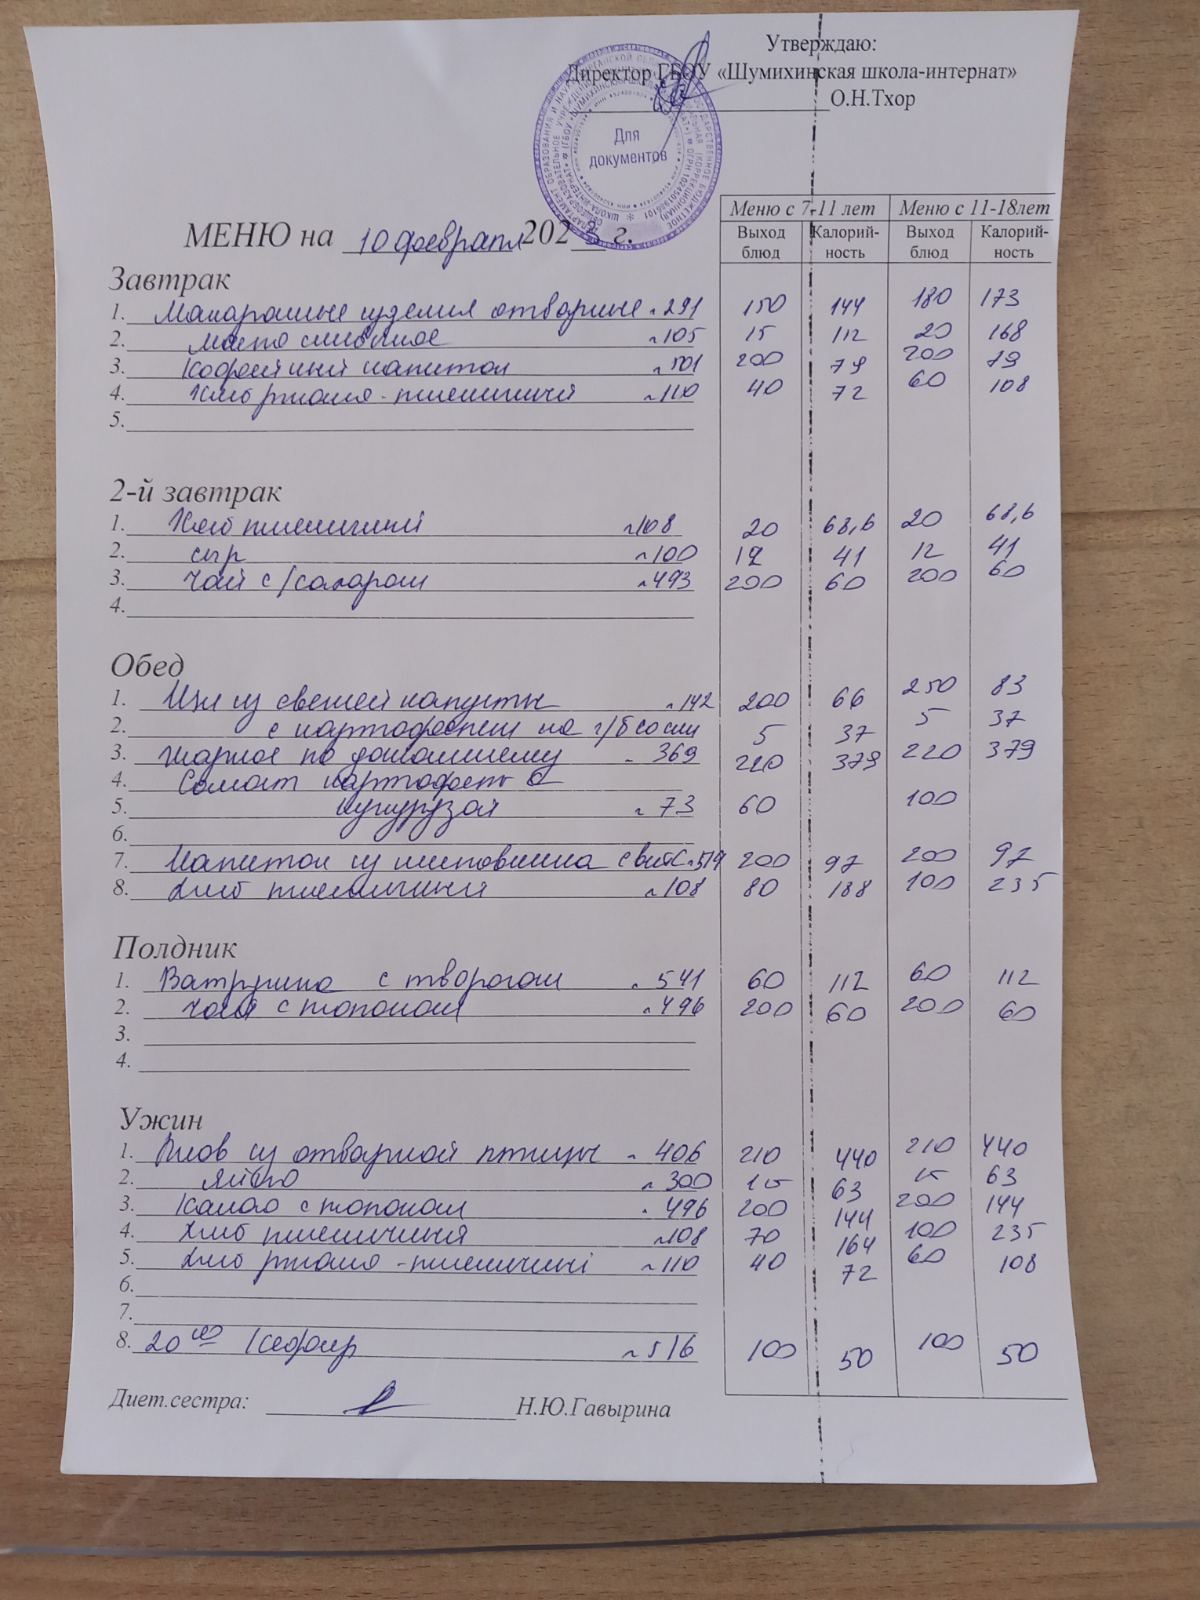 Утверждаю:
Директор ГБОУ «Шумихинская школа-интернат»
О.Н.Тхор
Для
документов
МЕНЮ на 10 февраля 202 г.
Меню с 7-11 лет Меню с 11-18лет
Выход блюд Калорий-ность Выход блюд Калорий-ность
Завтрак
1. Макаронные изделия отварные 291 150 144 180 173
2. масло сливочное 105 15 112 20 168
3. Кофейный напиток 501 200 79 200 79
4. Хлеб ржано-пшеничный 110 40 72 60 108
5.
2-й завтрак
1. Хлеб пшеничный 108 20 68,6 20 68,6
2. сыр 100 12 41 12 41
3. Чай с/сахаром 493 200 60 200 60
4.
Обед
1. Щи из свежей капусты 142 200 66 250 83
2. с картофелем на 5 37 5 37
3. Жаркое по домашнему 369 220 379 220 379
4. Салат картофель с
5. кукурузой 73 60 100
6.
7. Напиток из шиповника с вит С 519 200 97 200 97
8. Хлеб пшеничный 108 80 188 100 235
Полдник
1. Ватрушка с творогом 541 60 112 60 112
2. Чай с молоком 496 200 60 200 60
3.
4.
Ужин
1. Плов из отварной птицы 406 210 440 210 440
2. Яйцо 300 63 63
3. Какао с молоком 496 200 144 200 144
4. Хлеб пшеничный 108 70 164 100 235
5. Хлеб ржано-пшеничный 110 40 72 60 108
6.
7.
8. 20 Кефир 516 100 50 100 50
Диет.сестра: Н.Ю.Гавырина